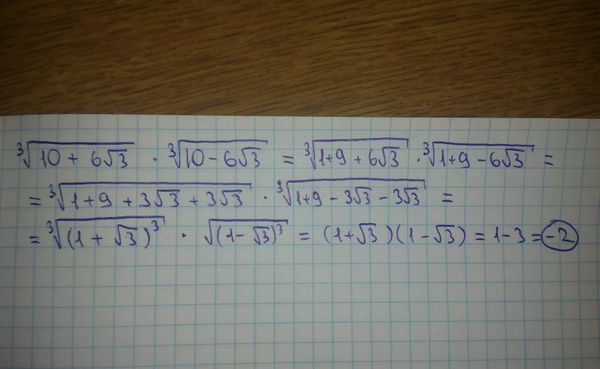 ∛(10 + 6√3) · ∛(10 - 6√3) = ∛(1+9 + 6√3) · ∛(1+9 - 6√3) =
= ∛(1+9 + 3√3 + 3√3) · ∛(1+9 - 3√3 - 3√3) =
= ∛((1 + √3)³) · √((1 - √3)³) = (1+√3)(1-√3) = 1-3 = -2